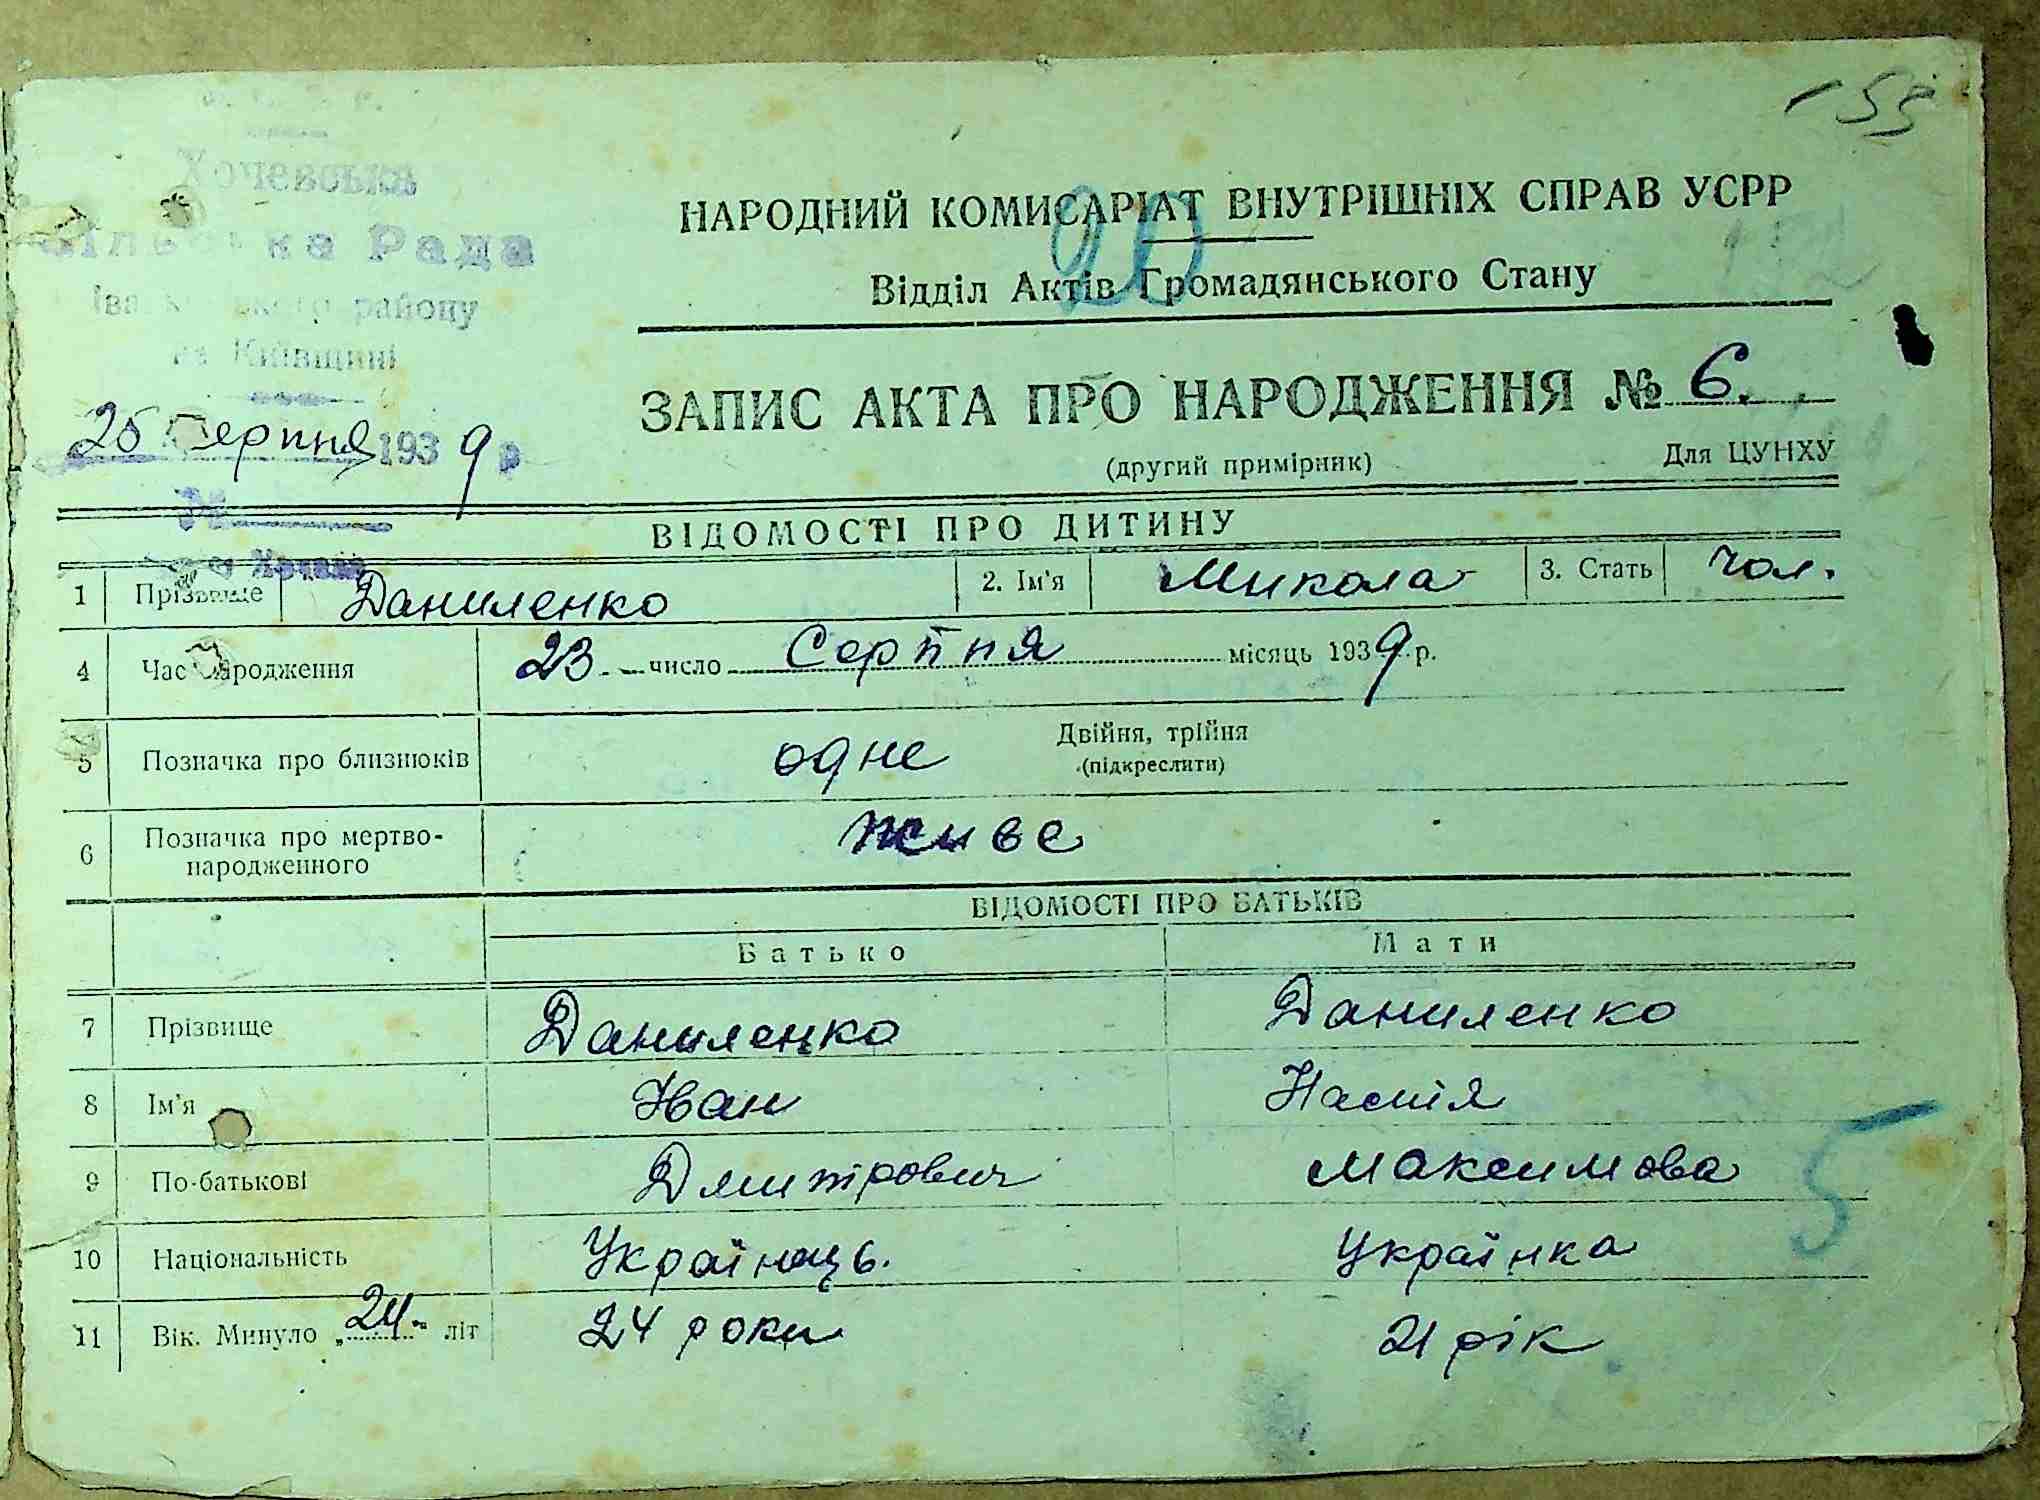 Хочевська
Рада
району
на Київщині
25 Серпня 1939 р
153
НАРОДНИЙ КОМИСАРІАТ ВНУТРІШНІХ СПРАВ УСРР
20
Відділ Актів Громадянського Стану
ЗАПИС АКТА ПРО НАРОДЖЕННЯ № 6.
(другий примірник) Для ЦУНХУ
ВІДОМОСТІ ПРО ДИТИНУ
1 Прізвище Даниленко 2. Ім'я Микола 3. Стать чол.
4 Час народження 23 число Серпня місяць 1939 р.
5 Позначка про близнюків одне Двійня, трійня
(підкреслити)
6 Позначка про мертво-
народженного живе
ВІДОМОСТІ ПРО БАТЬКІВ
Батько Мати
7 Прізвище Даниленко Даниленко
8 Ім'я Іван Настя
9 По-батькові Дмитрович Максимова
5
10 Національність Українець. Українка
11 Вік. Минуло „24" літ 24 роки 21 рік